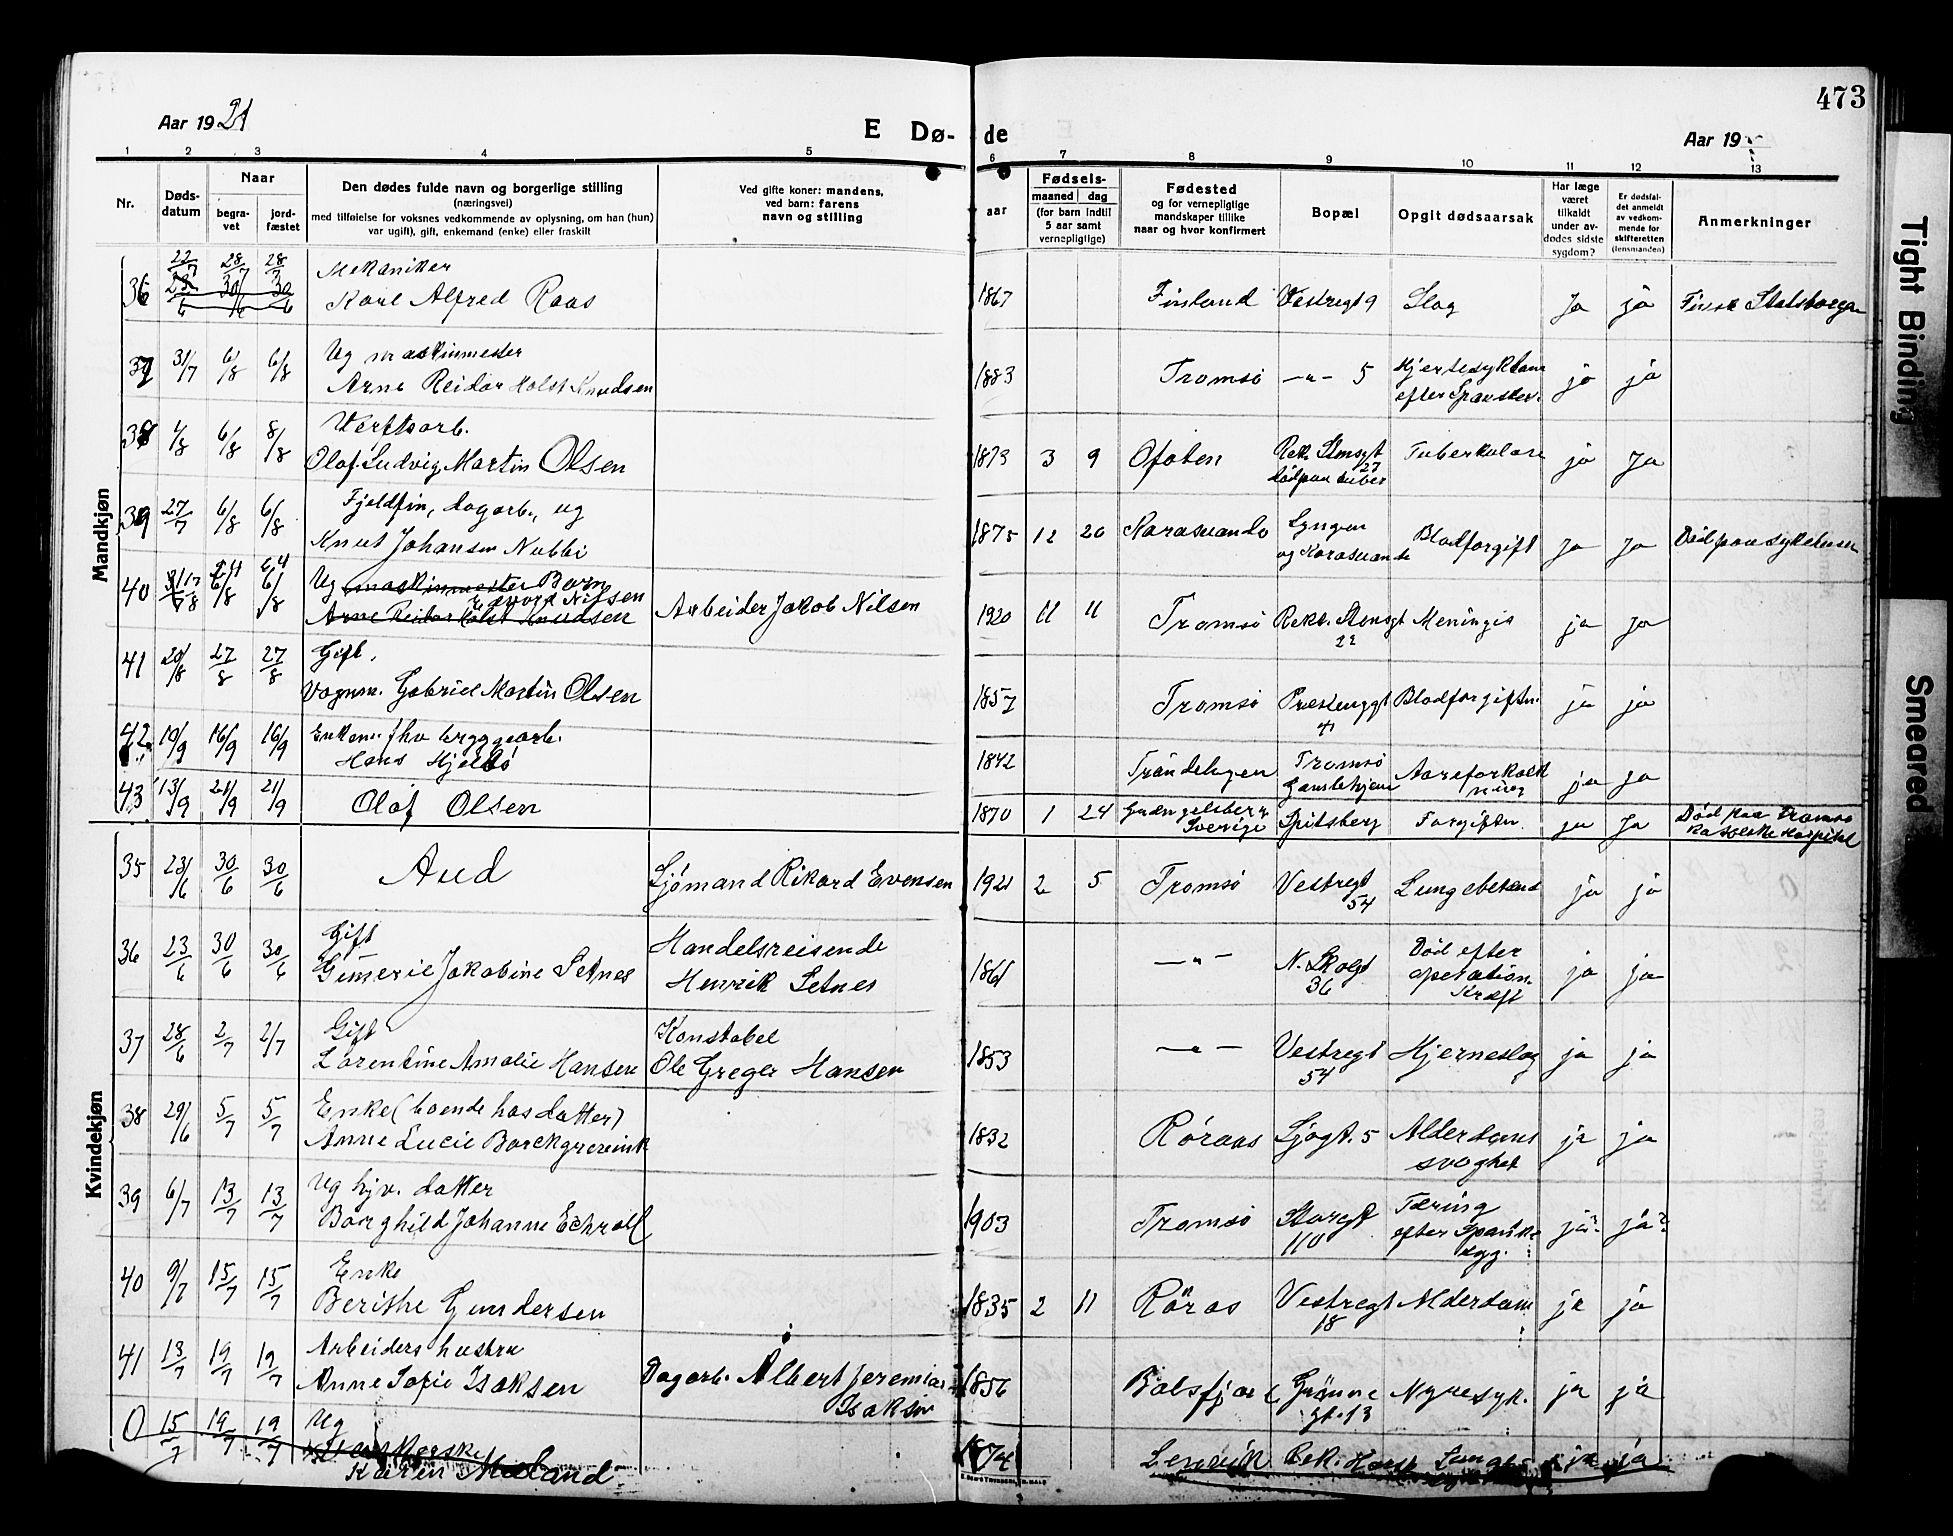 473
Aar 1921
E Dø-
de
Aar 19
1 2 3 4 5 6 7 8 9 10 11 12 13
Nr.
Døds-
datum
Naar
begra-
vet
jord-
fæstet
Den dødes fulde navn og borgerlige stilling
(næringsvei)
med tilføielse for voksnes vedkommende av oplysning, om han (hun)
var ugift), gift, enkemand (enke) eller fraskilt
Ved gifte koner: mandens,
ved barn: farens
navn og stilling
aar
Fødsels-
maaned dag
(for barn indtil
5 aar samt
vernepligtige)
Fødested
og for vernepligtige
mandskaper tillike
naar og hvor konfirmert
Bopæl
Opgit dødsaarsak
Har læge
været
tilkaldt
under av-
dødes sidste
sygdom?
Er dødsfal-
det anmeldt
av vedkom-
mende for
skifteretten
(lensmanden)
Anmerkninger
Mandkjøn
36 22/7 28/7 28/7 Mekaniker
Karl Alfred Raas 1867 Finland Vestregt 9 Slag Ja ja Finsk Statsborger
37 31/7 6/8 6/8 Ug maskinmester
Arne Reidar Holst Knudsen 1883 Tromsø —"— 5 Hjertesykdom
efter Spanske jo ja
38 4/8 6/8 8/8 Verftsarb.
Olaf Ludvig Martin Olsen 1873 3 9 Ofoten Rek. Stensgt
27
død paa tuber Tuberkulose jo Ja
39 27/7 6/8 6/8 Fjeldfin, dagarb., ug
Knut Johansen Nubbi 1875 12 20 Karasuando Lyngen
og Karasuando Blodforgift Ja Ja Død paa sykehuset
40 6/8 6/8 Ug maskinmester Barn
Edvard Nilsen
Arne Reidar Holst Knudsen Arbeider Jakob Nilsen 1920 11 11 Tromsø Rekv. Stensgt
22 Meningis ja Ja
41 20/8 27/8 27/8 Gift,
Vognm. Gabriel Martin Olsen 1857 Tromsø Prestenggt Blodforgiftn. ja ja
42 10/9 16/9 16/9 Enkem. fhv bryggearb.
Hans Hjelbø 1842 Trøndelagen Tromsø
Gamlehjem Aareforkalk
ning ja Ja
43 13/9 21/9 21/9 Olaf Olsen 1870 1 24
Sverige Spitsberg Forgiftn. ja Ja Død paa Tromsø
Katolske Hospital
Kvindekjøn
35 23/6 30/6 30/6 Aud Sjømand Rikard Evensen 1921 2 5 Tromsø Vestregt
54 Lungebetend ja ja
36 23/6 30/6 30/6 Gift
Gimerie Jakobine Setnes Handelsreisende
Henrik Setnes 1861 —"— N. Skolgt
36 Død efter
operation.
Kræft ja ja
37 28/6 2/7 2/7 Gift
Lorentine Amalie Hansen Konstabel
Ole Greger Hansen 1853 —"— Vestregt
54 Hjerneslag ja ja
38 29/6 5/7 5/7 Enke (boende hos datter)
Anne Lucie Borckgrevink 1832 Røraas Sjøgt. 5 Alderdoms
svaghet ja ja
39 6/7 13/7 13/7 Ug hjv. datter
Borghild Johanne Echroll 1903 Tromsø Storgt
110 Tæring
efter Spanske
syg. ja? ja?
40 9/7 15/7 15/7 Enke
Berithe Gundersen 1835 2 11 Røros Vestregt
18 Alderdom ja ja
41 13/7 19/7 19/7 Arbeiders hustru
Anne Sofie Isaksen Dagarb. Albert Jeremias
Isaksen 1856 Balsfjord Grønne
gt. 13 Nyresyk. ja ja
0 15/7 19/7 19/7 Ug
Karen Meland 1874 Lenvik Rek. Lunge ja ja
Tight Binding
Smeared